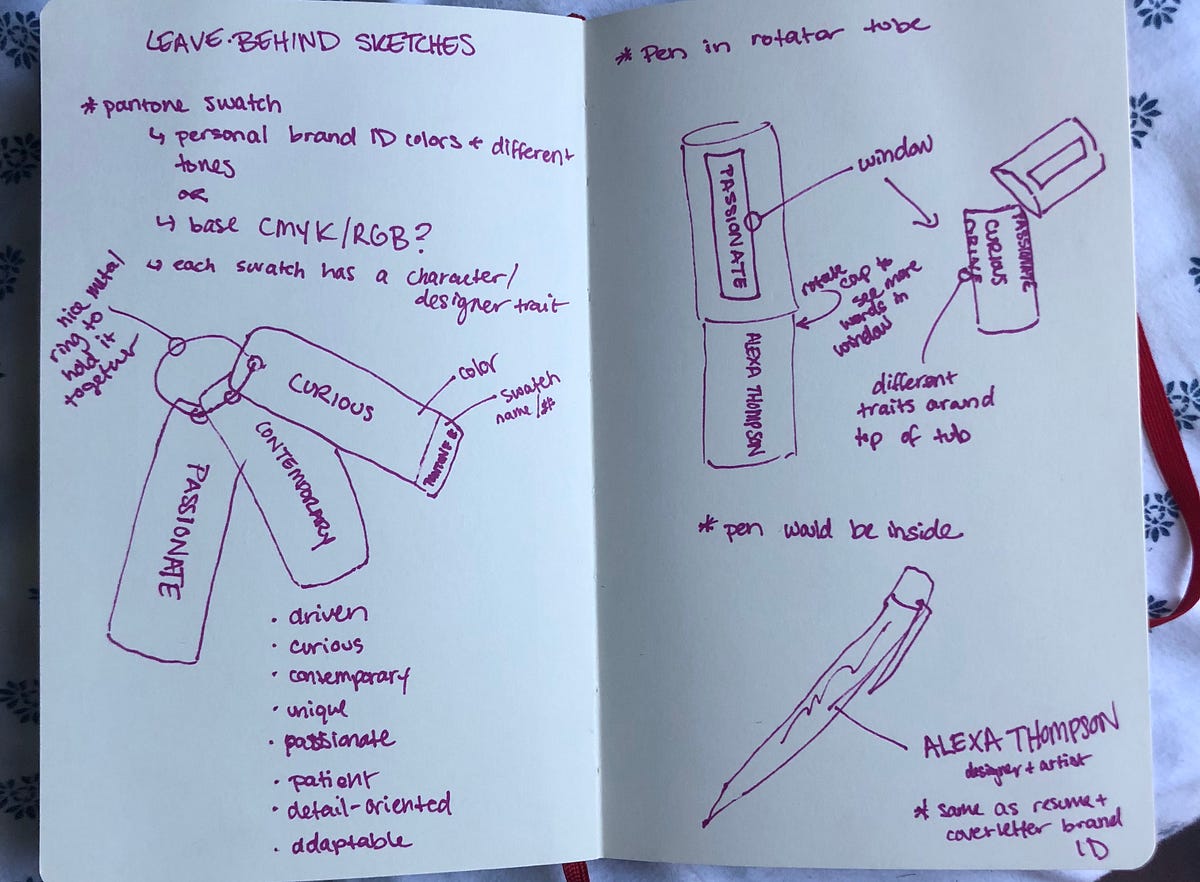 LEAVE-BEHIND SKETCHES
* pantone swatch
↳ personal brand ID colors + different
tones
OR
↳ base CMYK/RGB?
↳ each swatch has a character/
designer trait
nice metal
ring to
hold it
together
CURIOUS
color
swatch
name/#
CONTEMPORARY
PASSIONATE
· driven
· curious
· contemporary
· unique
· passionate
· patient
· detail-oriented
· adaptable
* Pen in rotator tube
PASSIONATE
window
rotate
cap to
see more
words in
window
ALEXA THOMPSON
PASSIONATE
CURIOUS
different
traits around
top of tub
* pen would be inside
ALEXA THOMPSON
designer + artist
* same as resume +
coverletter brand
ID